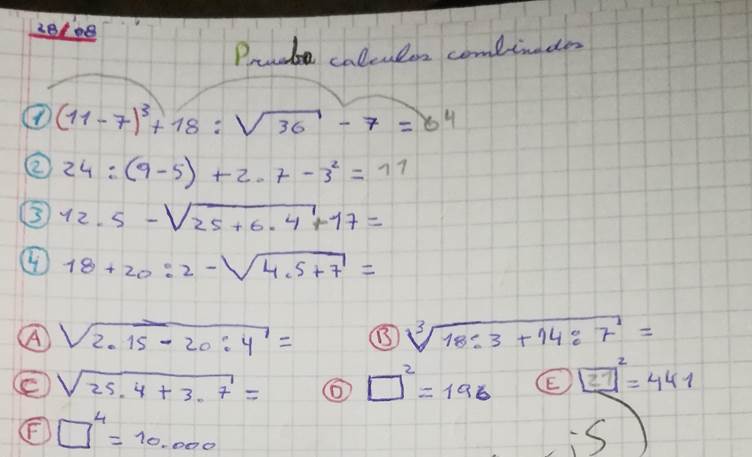 28/08
Prueba calculos combinados
① (11-7)³ + 18 : √36 - 7 = 64
② 24 : (9-5) + 2 . 7 - 3² = 11
③ 12 . 5 - √(25 + 6 . 4) + 17 =
④ 18 + 20 : 2 - √(4 . 5 + 7) =
Ⓐ √(2 . 15 - 20 : 4) =
Ⓑ ³√(18 : 3 + 14 : 7) =
Ⓒ √(25 . 4 + 3 . 7) =
Ⓓ □² = 196
Ⓔ [21]² = 441
Ⓕ □⁴ = 10.000